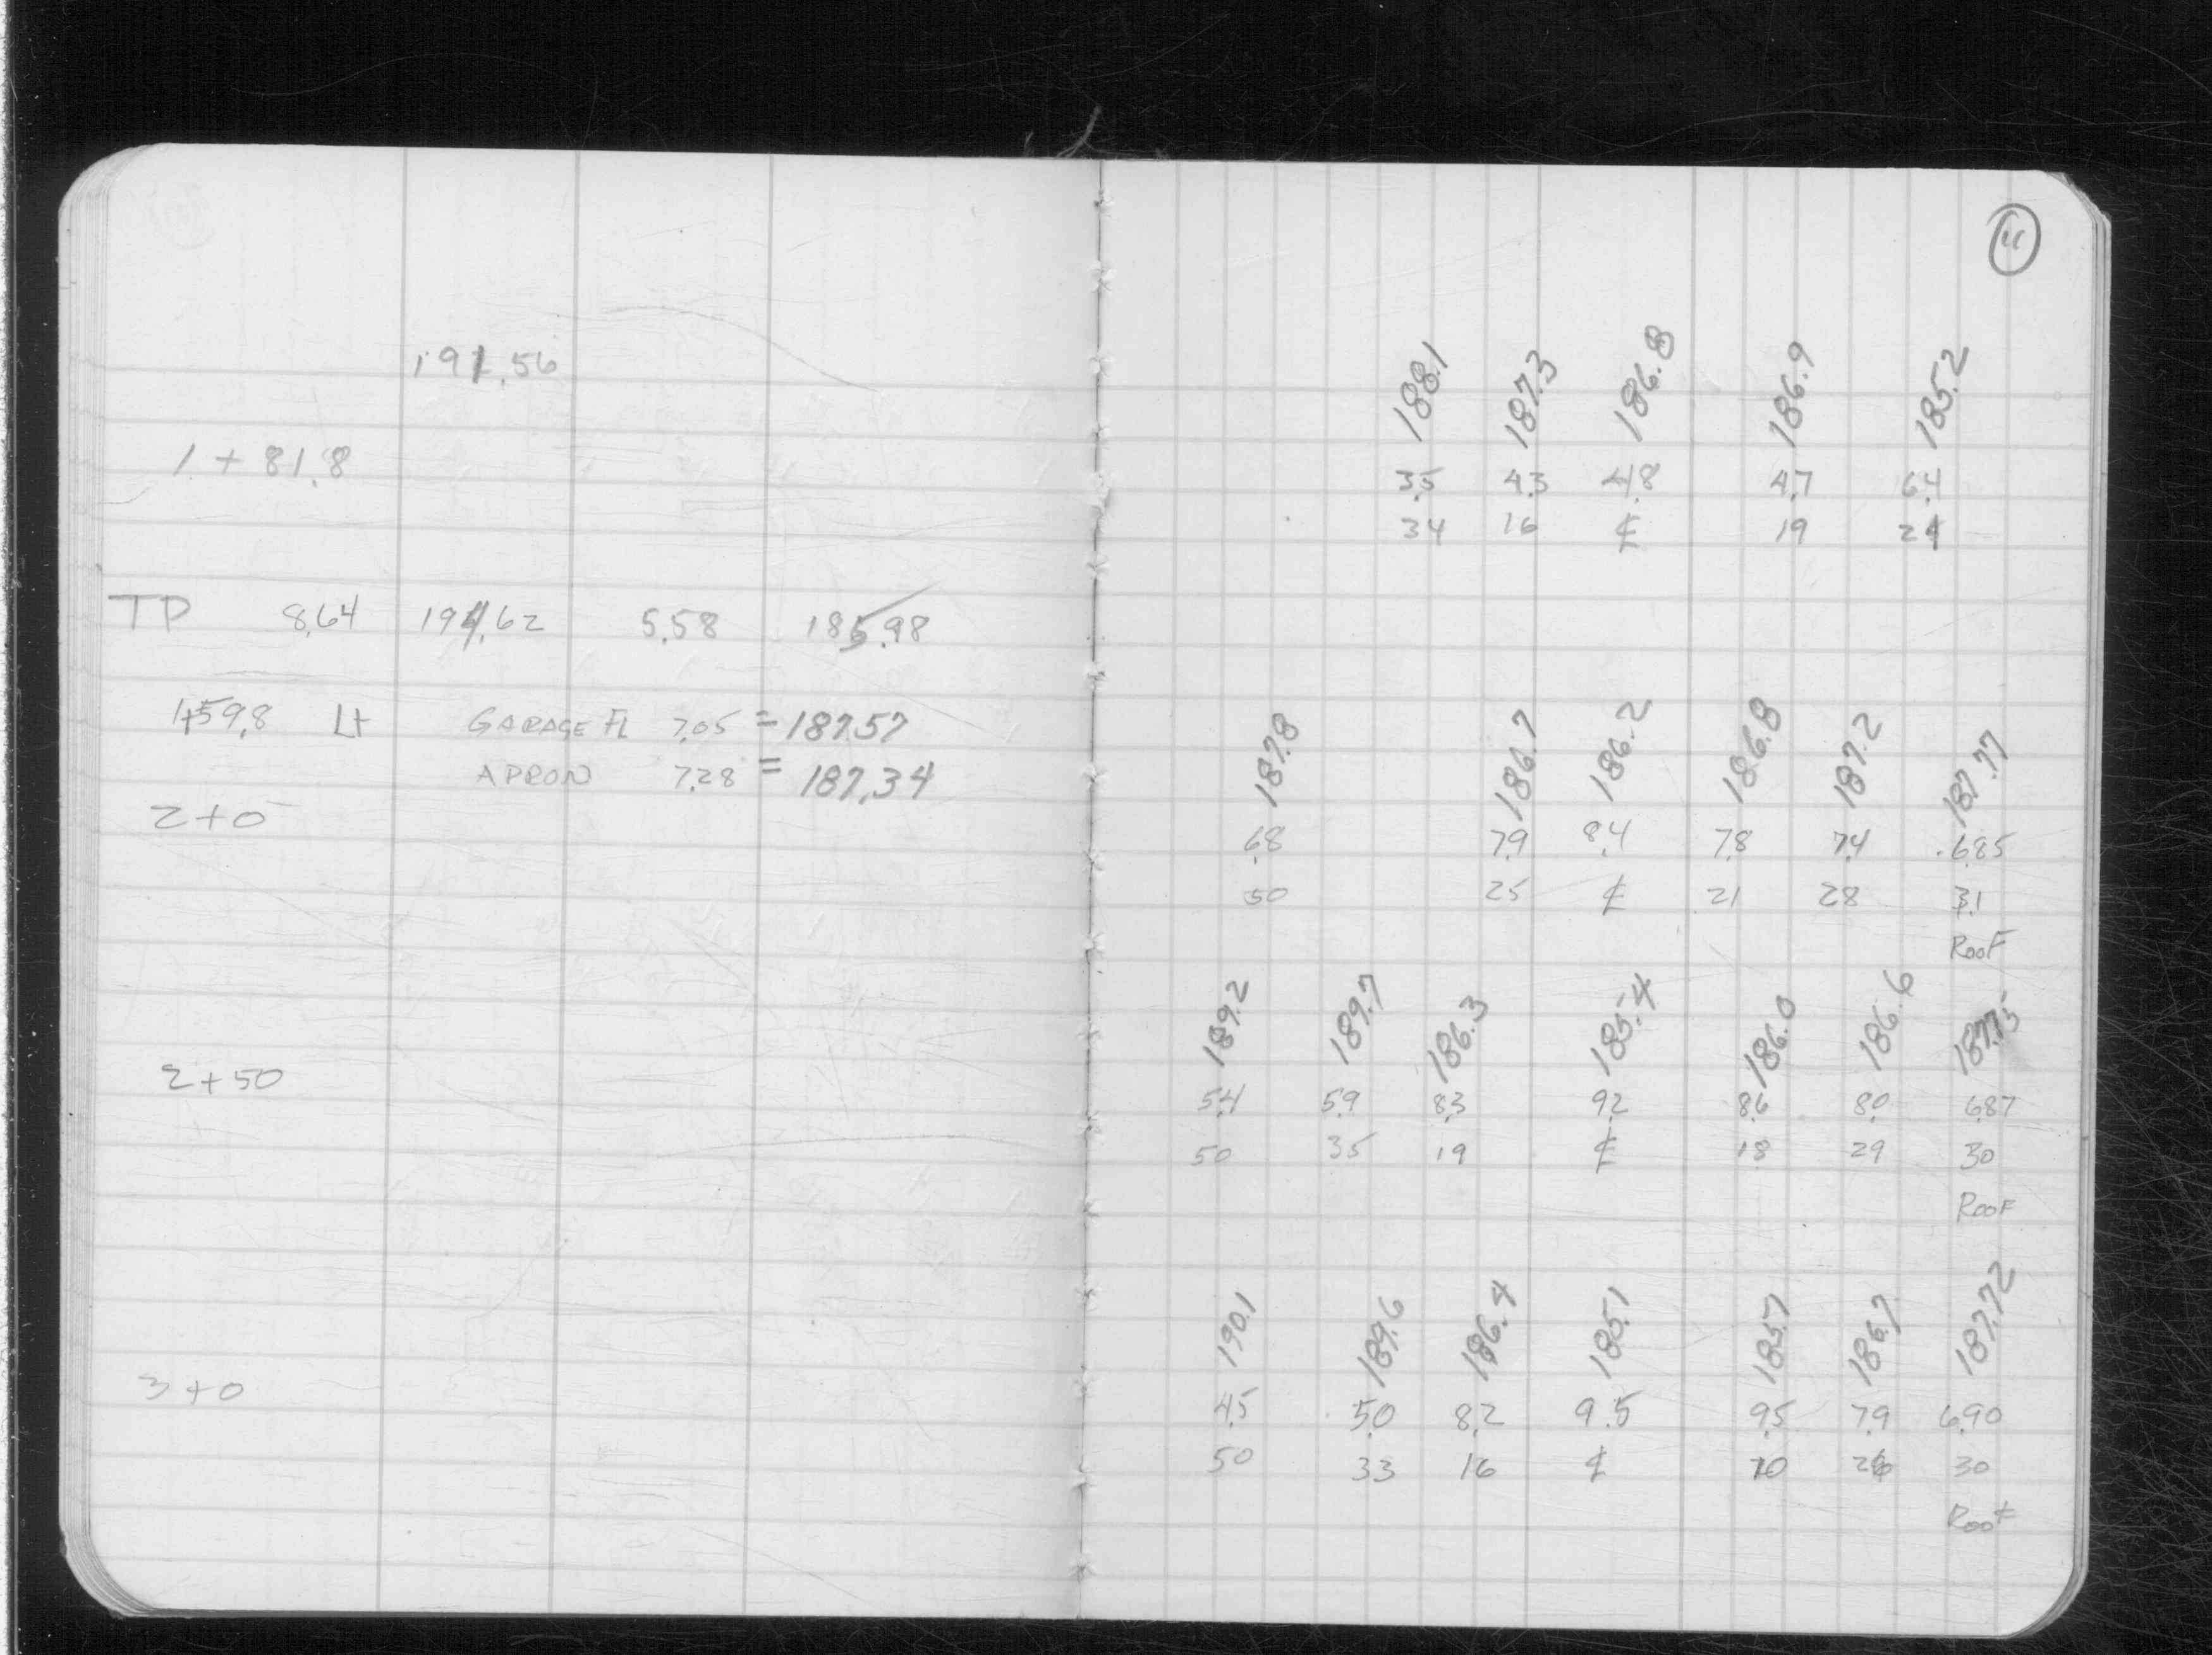 11
191.56
188.1 187.3 186.8 186.9 185.2
1+81.8
3.5 4.3 4.8 4.7 6.4
34 16 ℄ 19 24
TP 8.64 194.62 5.58 185.98
1+59.8 Lt GARAGE FL 7.05 = 187.57
APRON 7.28 = 187.34
187.8 186.7 186.2 186.8 187.2 187.77
2+0
6.8 7.9 8.4 7.8 7.4 6.85
50 25 ℄ 21 28 31
ROOF
189.2 189.7 186.3 185.4 186.0 186.6 187.75
2+50
5.4 5.9 8.3 9.2 8.6 8.0 6.87
50 35 19 ℄ 18 29 30
ROOF
190.1 189.6 186.4 185.1 185.7 186.7 187.72
3+0
4.5 5.0 8.2 9.5 9.5 7.9 6.90
50 33 16 ℄ 10 26 30
ROOF